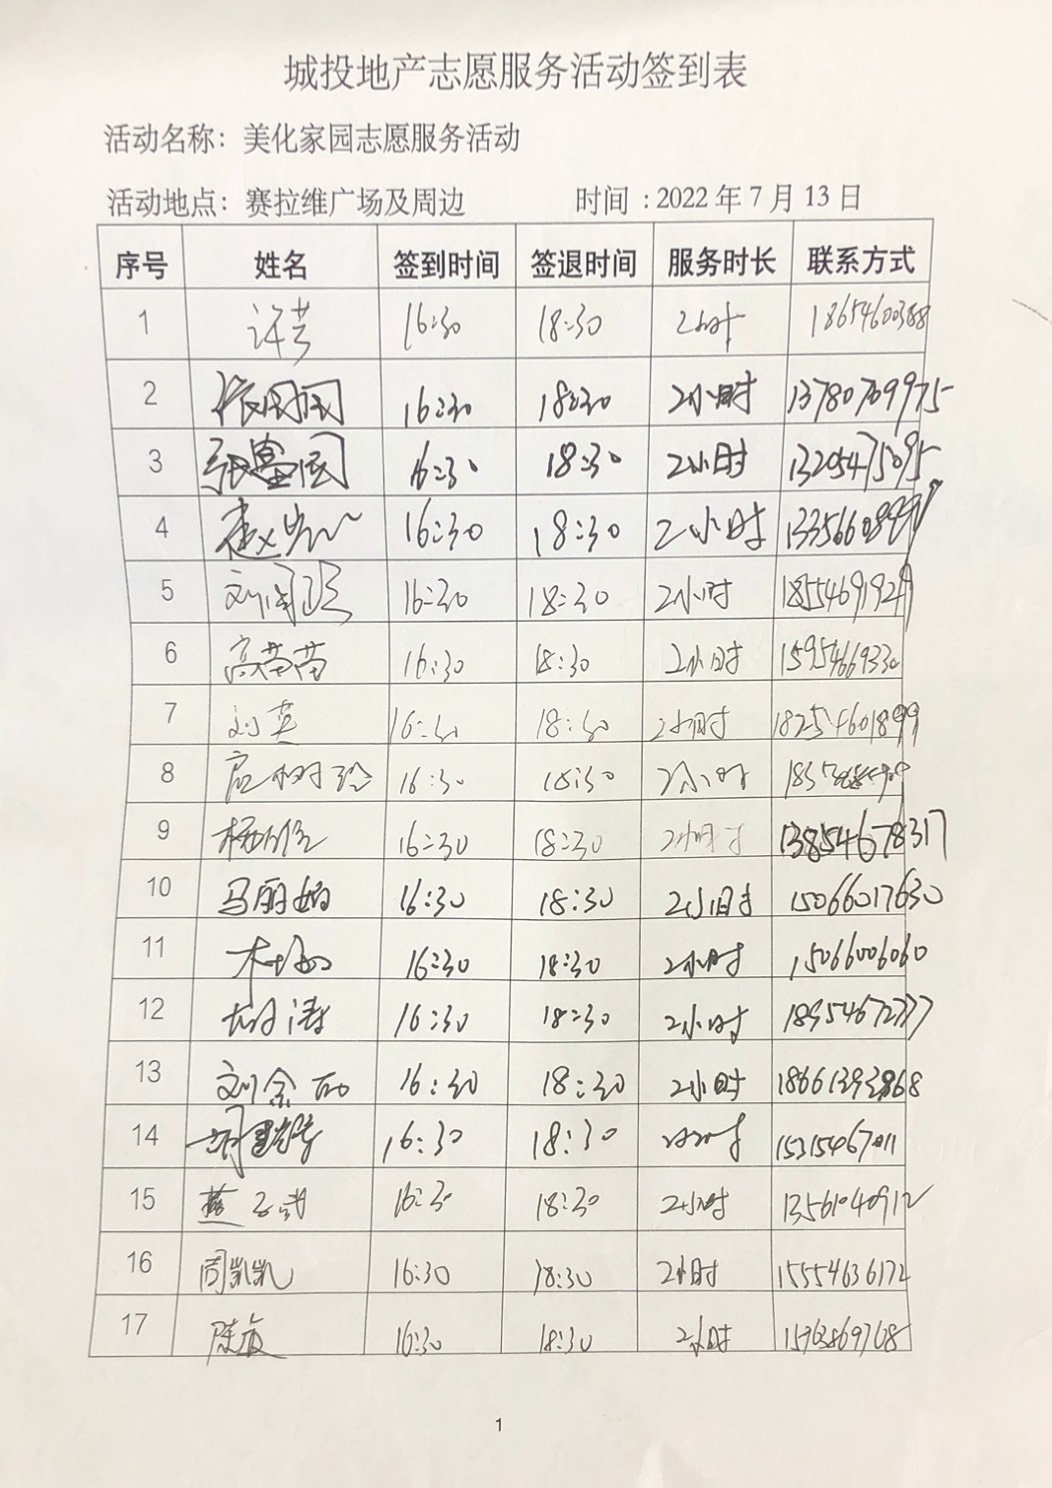 城投地产志愿服务活动签到表
活动名称：美化家园志愿服务活动
活动地点：赛拉维广场及周边 时间：2022年7月13日
序号 姓名 签到时间 签退时间 服务时长 联系方式
1 许芸 16:30 18:30 2小时 18654600388
2 16:30 18:30 2小时 13780709975
3 16:30 18:30 2小时 13205475095
4 16:30 18:30 2小时
5 16:30 18:30 2小时
6 高苗苗 16:30 18:30 2小时 15954669330
7 刘英 16:30 18:30 2小时 18254601899
8 16:30 18:30 2小时
9 16:30 18:30 2小时 13854678317
10 马丽娟 16:30 18:30 2小时 15066017630
11 16:30 18:30 2小时 15066006060
12 胡涛 16:30 18:30 2小时 18954672777
13 16:30 18:30 2小时
14 16:30 18:30 2小时
15 16:30 18:30 2小时 13561040912
16 周凯凯 16:30 18:30 2小时 15554636172
17 16:30 18:30 2小时
1